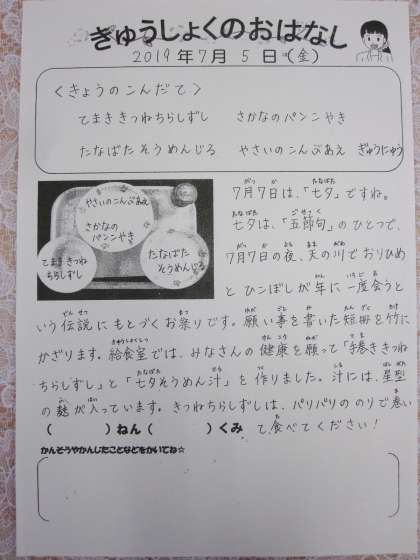 ぎゅうしょくのおはなし
2019年7月5日(金)
<きょうのこんだて>
てまききつねちらしずし さかなのパンこやき
たなばたそうめんじる やさいのこんぶあえ ぎゅうにゅう
やさいのこんぶあえ
さかなのパンこやき
てまききつねちらしずし
たなばたそうめんじる
7月7日は、「七夕」ですね。
七夕は、「五節句」のひとつで、
7月7日の夜、天の川でおりひめ
とひこぼしが年に一度会うと
いう伝説にもとづくお祭りです。願い事を書いた短冊を竹に
かざります。給食室では、みなさんの健康を願って「手巻ききつね
ちらしずし」と「七夕そうめん汁」を作りました。汁には、星型
の麩が入っています。きつねちらしずしは、パリパリののりで巻い
て食べてください!
( )ねん( )くみ
かんそうやかんじたことなどをかいてね☆